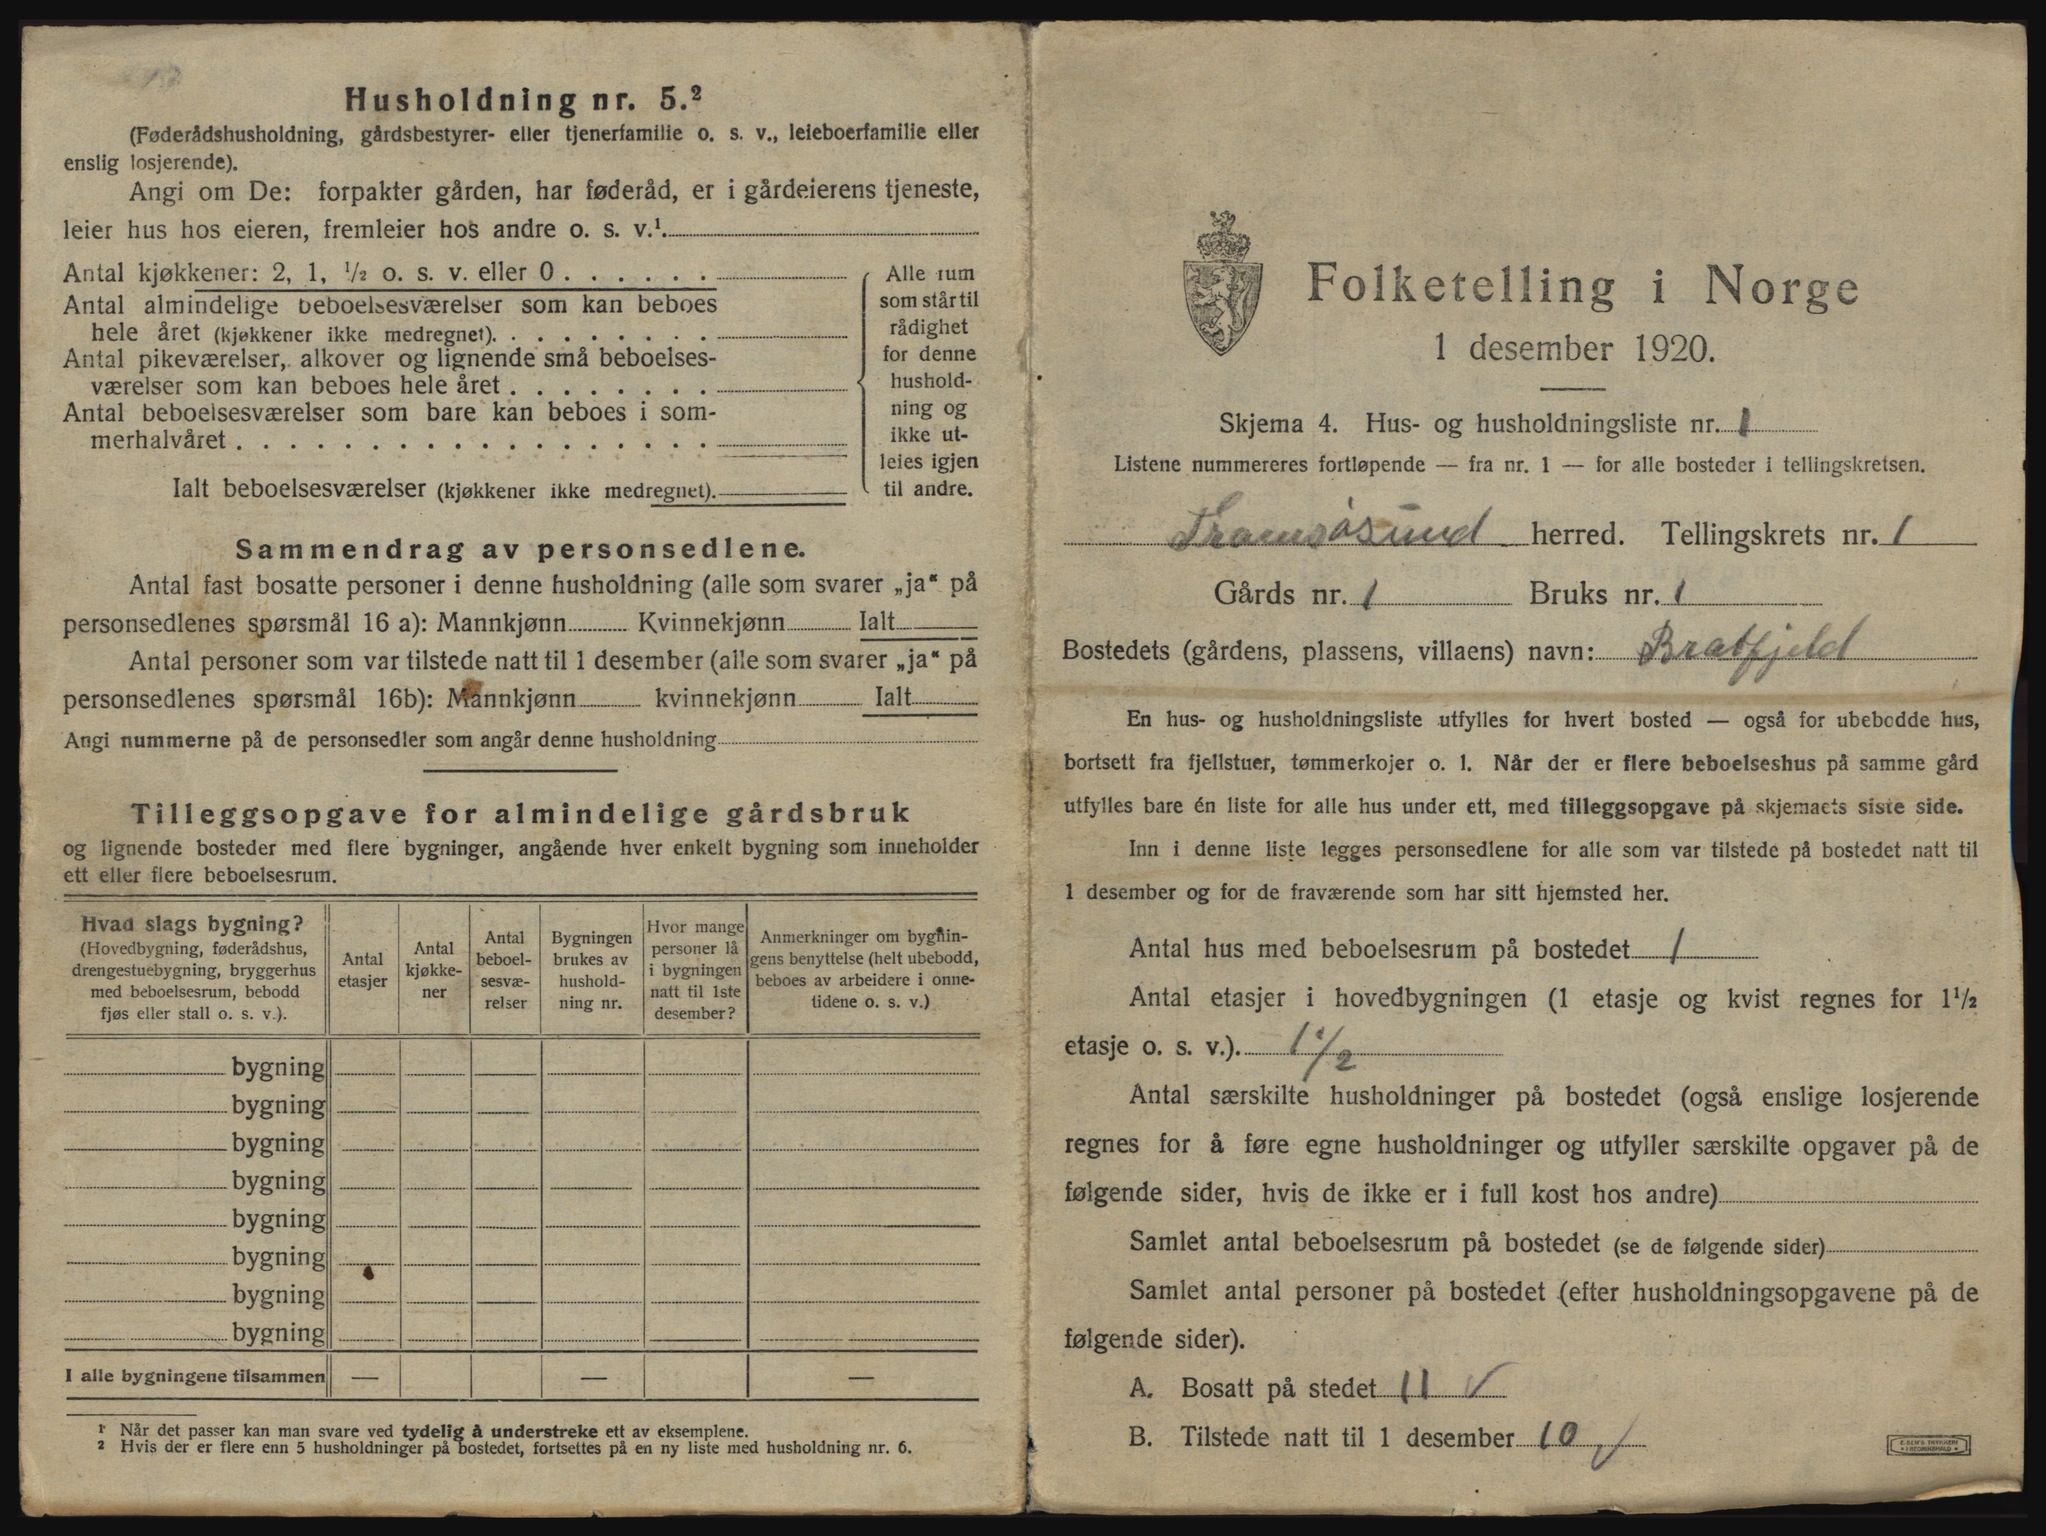 Husholdning nr. 5.²
(Føderådshusholdning, gårdsbestyrer- eller tjenerfamilie o. s. v., leieboerfamilie eller
enslig losjerende).
Angi om De: forpakter gården, har føderåd, er i gårdeierens tjeneste,
leier hus hos eieren, fremleier hos andre o. s. v.¹
Antal kjøkkener: 2, 1, ½ o. s. v. eller 0 . . . . . .
Antal almindelige beboelsesværelser som kan beboes
hele året (kjøkkener ikke medregnet). . . . . . . . .
Antal pikeværelser, alkover og lignende små beboelses-
værelser som kan beboes hele året . . . . . . . .
Antal beboelsesværelser som bare kan beboes i som-
merhalvåret . . . . . . . . . . . . . . . . . .
Ialt beboelsesværelser (kjøkkener ikke medregnet).
Alle rum
som står til
rådighet
for denne
hushold-
ning og
ikke ut-
leies igjen
til andre.
Sammendrag av personsedlene.
Antal fast bosatte personer i denne husholdning (alle som svarer „ja“ på
personsedlenes spørsmål 16 a): Mannkjønn Kvinnekjønn Ialt
Antal personer som var tilstede natt til 1 desember (alle som svarer „ja“ på
personsedlenes spørsmål 16b): Mannkjønn kvinnekjønn Ialt
Angi nummerne på de personsedler som angår denne husholdning
Tilleggsopgave for almindelige gårdsbruk
og lignende bosteder med flere bygninger, angående hver enkelt bygning som inneholder
ett eller flere beboelsesrum.
Hvad slags bygning?
(Hovedbygning, føderådshus,
drengestuebygning, bryggerhus
med beboelsesrum, bebodd
fjøs eller stall o. s. v.).
Antal
etasjer
Antal
kjøkke-
ner
Antal
beboel-
sesvæ-
relser
Bygningen
brukes av
hushold-
ning nr.
Hvor mange
personer lå
i bygningen
natt til 1ste
desember?
Anmerkninger om bygnin-
gens benyttelse (helt ubebodd,
beboes av arbeidere i onne-
tidene o. s. v.)
bygning
bygning
bygning
bygning
bygning
bygning
bygning
bygning
I alle bygningene tilsammen — — —
¹ Når det passer kan man svare ved tydelig å understreke ett av eksemplene.
² Hvis der er flere enn 5 husholdninger på bostedet, fortsettes på en ny liste med husholdning nr. 6.
Folketelling i Norge
1 desember 1920.
Skjema 4. Hus- og husholdningsliste nr. 1
Listene nummereres fortløpende — fra nr. 1 — for alle bosteder i tellingskretsen.
Tromsösund herred. Tellingskrets nr. 1
Gårds nr. 1 Bruks nr. 1
Bostedets (gårdens, plassens, villaens) navn: Bratfjeld
En hus- og husholdningsliste utfylles for hvert bosted — også for ubebodde hus,
bortsett fra fjellstuer, tømmerkojer o. l. Når der er flere beboelseshus på samme gård
utfylles bare én liste for alle hus under ett, med tilleggsopgave på skjemaets siste side.
Inn i denne liste legges personsedlene for alle som var tilstede på bostedet natt til
1 desember og for de fraværende som har sitt hjemsted her.
Antal hus med beboelsesrum på bostedet 1
Antal etasjer i hovedbygningen (1 etasje og kvist regnes for 1½
etasje o. s. v.). 1½
Antal særskilte husholdninger på bostedet (også enslige losjerende
regnes for å føre egne husholdninger og utfyller særskilte opgaver på de
følgende sider, hvis de ikke er i full kost hos andre)
Samlet antal beboelsesrum på bostedet (se de følgende sider)
Samlet antal personer på bostedet (efter husholdningsopgavene på de
følgende sider).
A. Bosatt på stedet 11 √
B. Tilstede natt til 1 desember 10 √